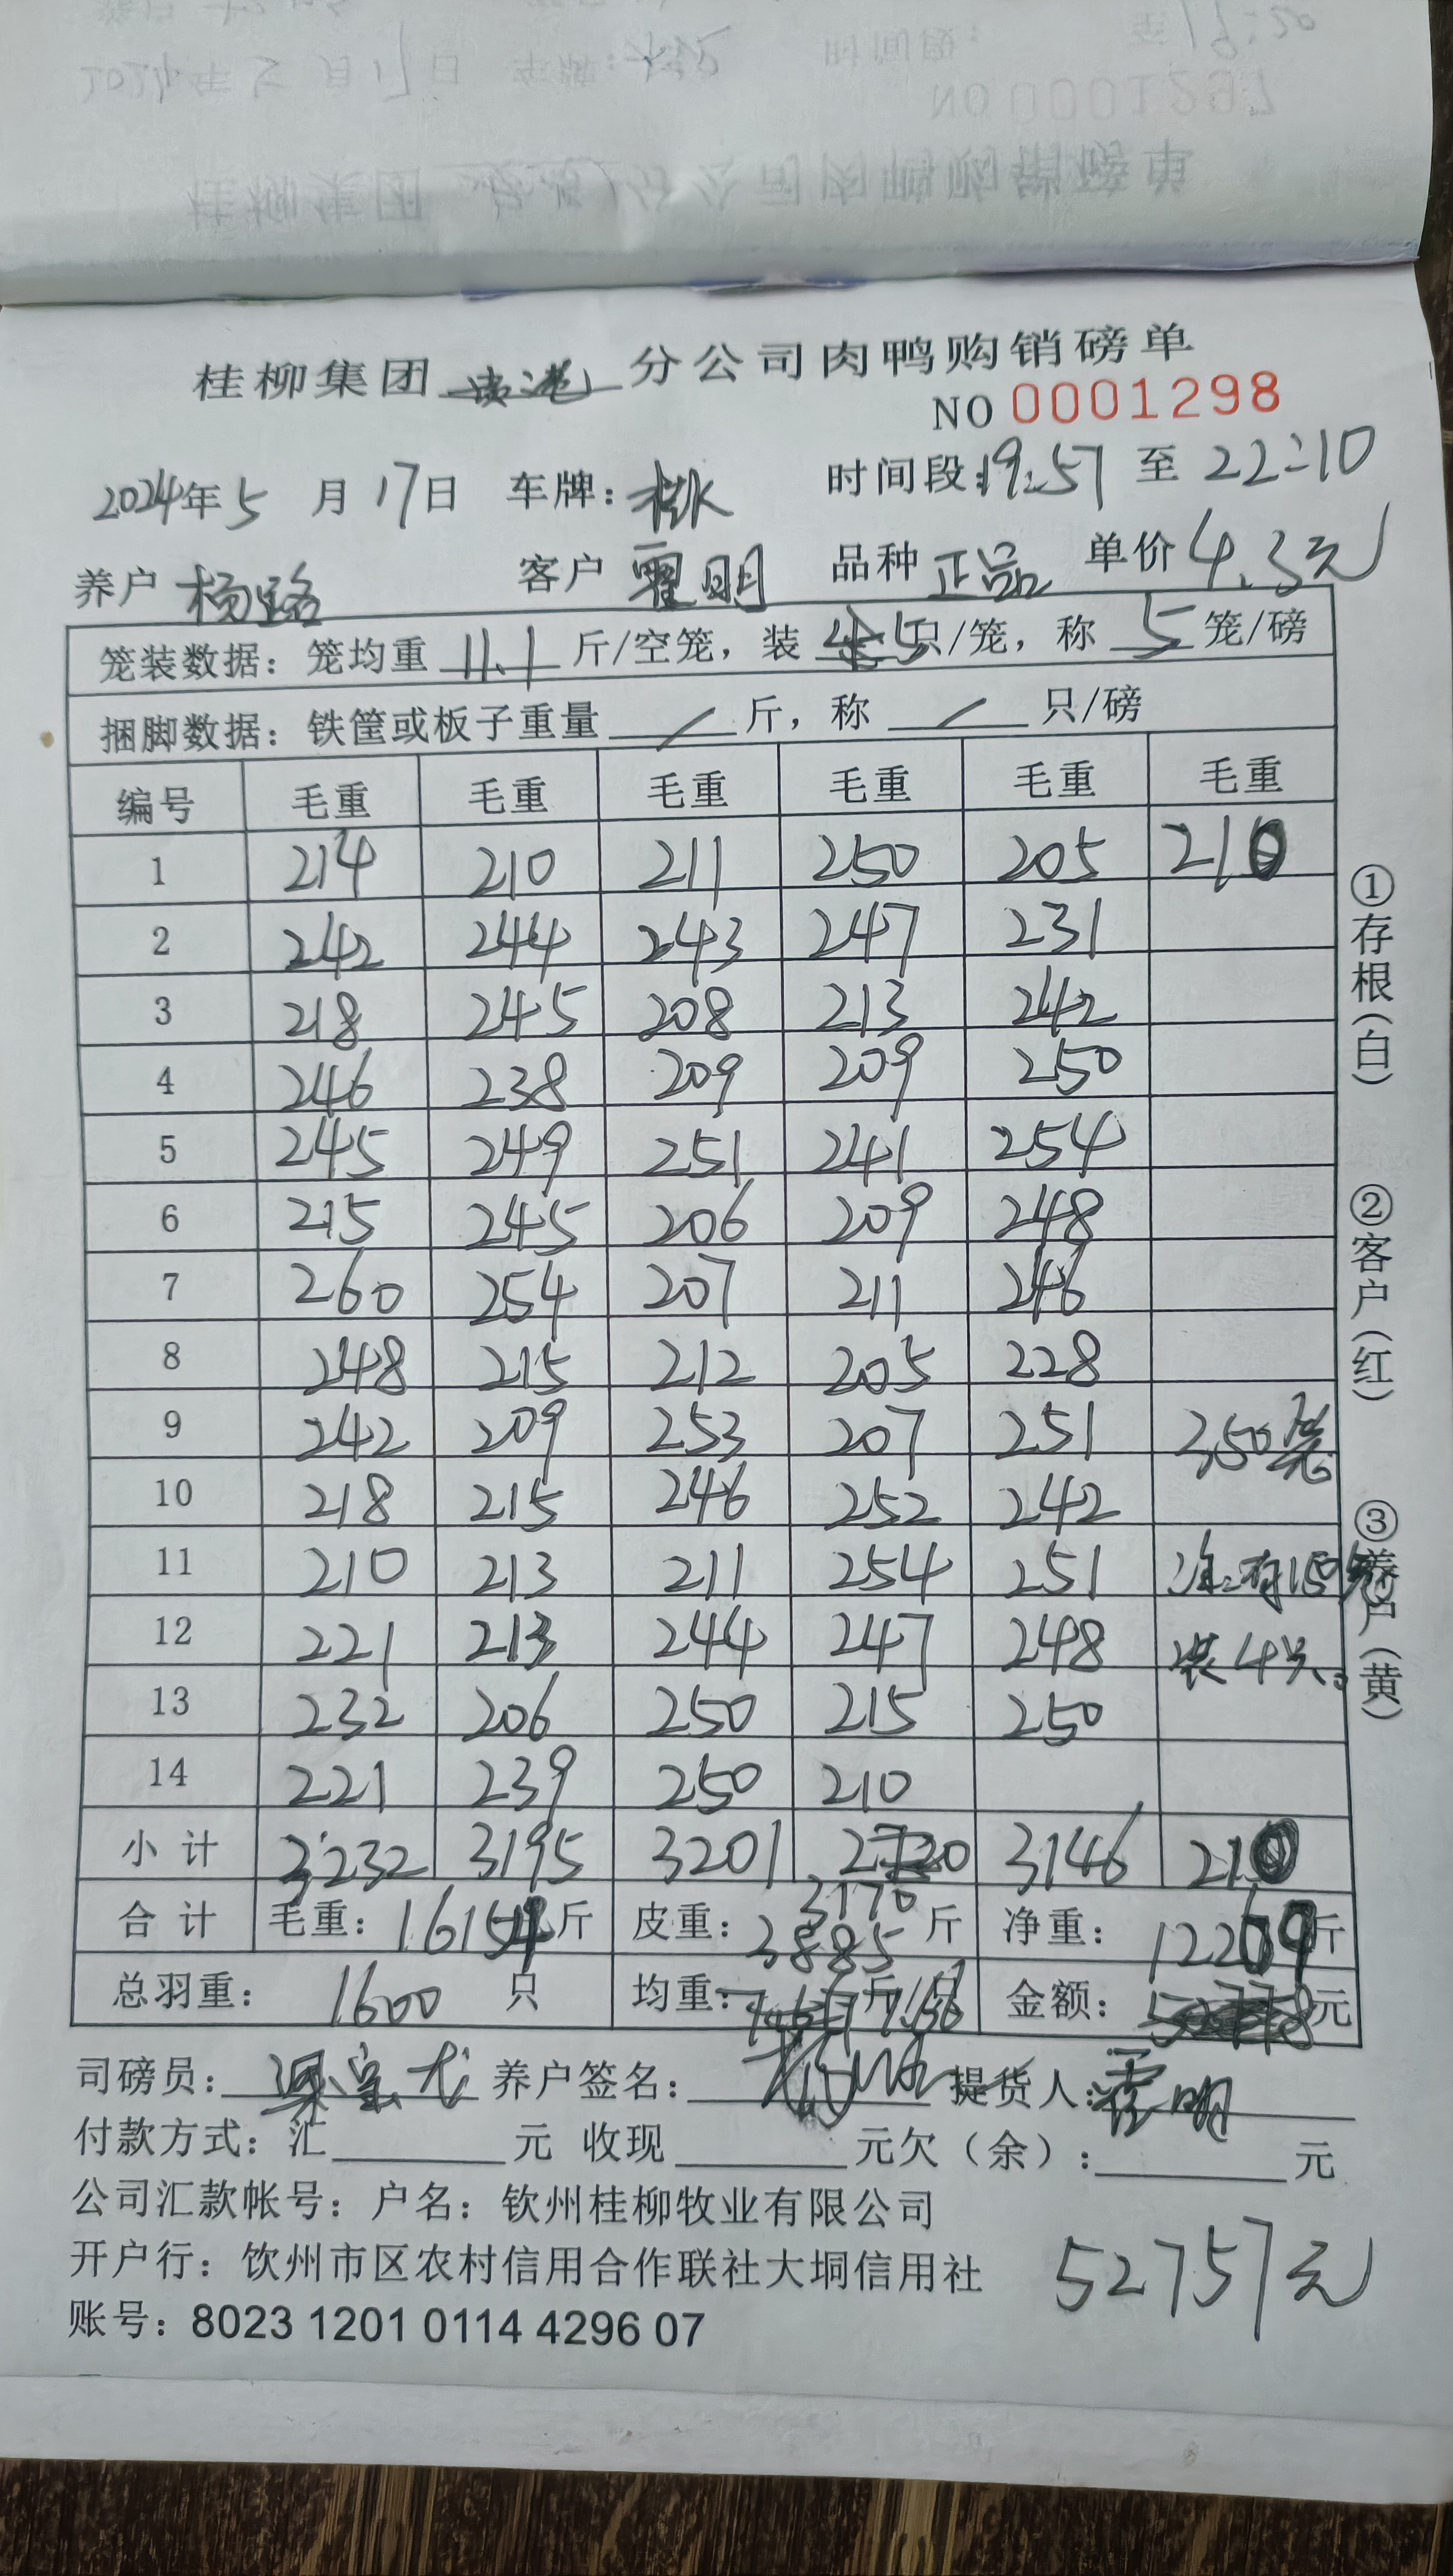 桂柳集团 贵港 分公司肉鸭购销磅单
NO 0001298
2024年5月17日 车牌: 时间段:19:57 至 22:10
养户 杨路 客户 霍明 品种 正品 单价 4.3元
笼装数据: 笼均重 11.1 斤/空笼, 装 5只/笼, 称 5 笼/磅
捆脚数据: 铁筐或板子重量 / 斤, 称 / 只/磅
编号 毛重 毛重 毛重 毛重 毛重 毛重
1 214 210 211 250 205 210
2 242 244 243 247 231
3 218 245 208 213 242
4 246 238 209 209 250
5 245 249 251 241 254
6 215 245 206 209 248
7 260 254 207 211 246
8 248 215 212 205 228
9 242 209 253 207 251 350笼
10 218 215 246 252 242
11 210 213 211 254 251 注:有150笼
12 221 213 244 247 248 装4只。
13 232 206 250 215 250
14 221 239 250 210
小计 3232 3195 3201 3170 3146 210
合计 毛重: 16154斤 皮重: 3885 斤 净重: 12269斤
总羽重: 1600 只 均重: 7.66 金额: 元
司磅员: 养户签名: 提货人: 霍明
付款方式: 汇 元 收现 元欠(余): 元
公司汇款帐号: 户名: 钦州桂柳牧业有限公司
开户行: 饮州市区农村信用合作联社大垌信用社
52757元
账号: 8023 1201 0114 4296 07
①存根(白) ②客户(红) ③养户(黄)